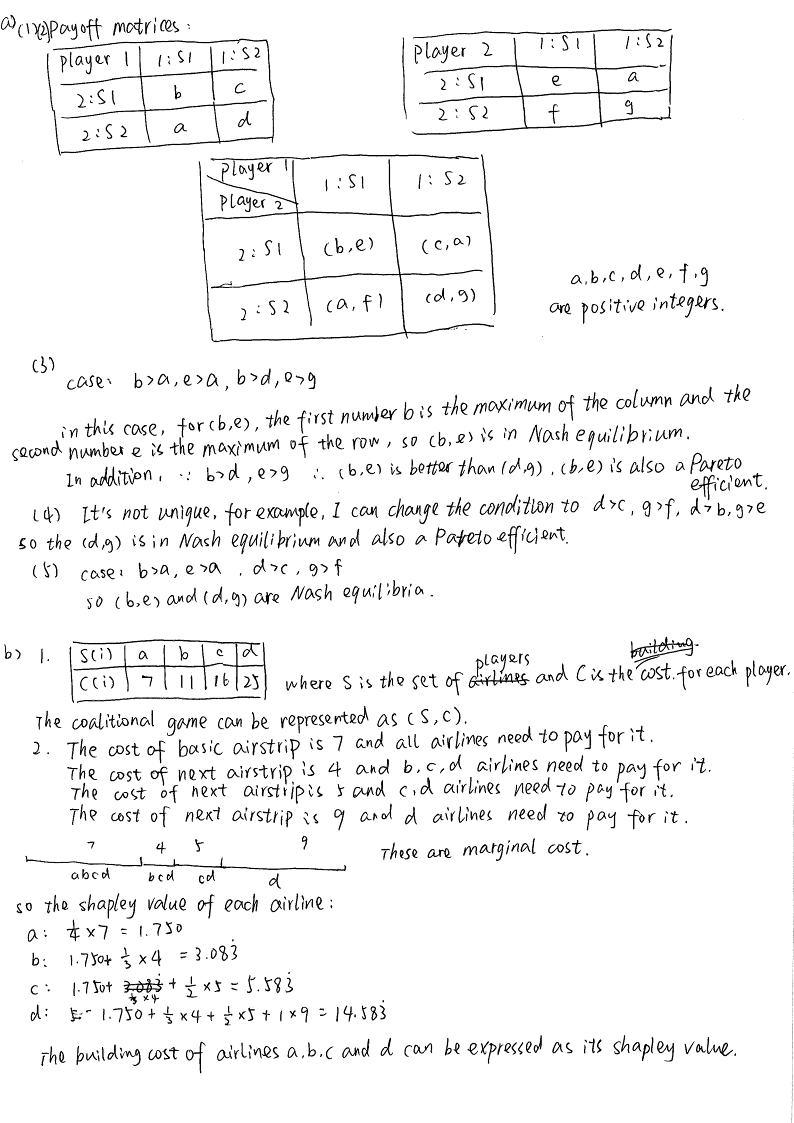 a) (1)(2) Payoff matrices:
player 1 | 1:S1 | 1:S2
2:S1 | b | c
2:S2 | a | d
player 2 | 1:S1 | 1:S2
2:S1 | e | a
2:S2 | f | g
player 1 player 2 | 1:S1 | 1:S2
2:S1 | (b,e) | (c,a)
2:S2 | (a,f) | (d,g)
a,b,c,d,e,f,g
are positive integers.
(3)
case: b>a, e>a, b>d, e>g
in this case, for (b,e), the first number b is the maximum of the column and the
second number e is the maximum of the row, so (b,e) is in Nash equilibrium.
In addition, ∵ b>d, e>g ∴ (b,e) is better than (d,g), (b,e) is also a Pareto
efficient.
(4) It's not unique, for example, I can change the condition to d>c, g>f, d>b, g>e
so the (d,g) is in Nash equilibrium and also a Pareto efficient.
(5) case: b>a, e>a, d>c, g>f
so (b,e) and (d,g) are Nash equilibria.
b) 1.
S(i) | a | b | c | d
C(i) | 7 | 11 | 16 | 25
where S is the set of players airlines and C is the building cost for each player.
The coalitional game can be represented as (S,C).
2. The cost of basic airstrip is 7 and all airlines need to pay for it.
The cost of next airstrip is 4 and b,c,d airlines need to pay for it.
The cost of next airstrip is 5 and c,d airlines need to pay for it.
The cost of next airstrip is 9 and d airlines need to pay for it.
7 4 5 9
abcd bcd cd d
These are marginal cost.
so the shapley value of each airline:
a: ¼×7 = 1.750
b: 1.750+ ⅓×4 = 3.083̇
c: 1.750+ 3.083̇ ⅓×4 + ½×5 = 5.583̇
d: 1.750+⅓×4+½×5+1×9=14.583̇
The building cost of airlines a,b,c and d can be expressed as its shapley value.